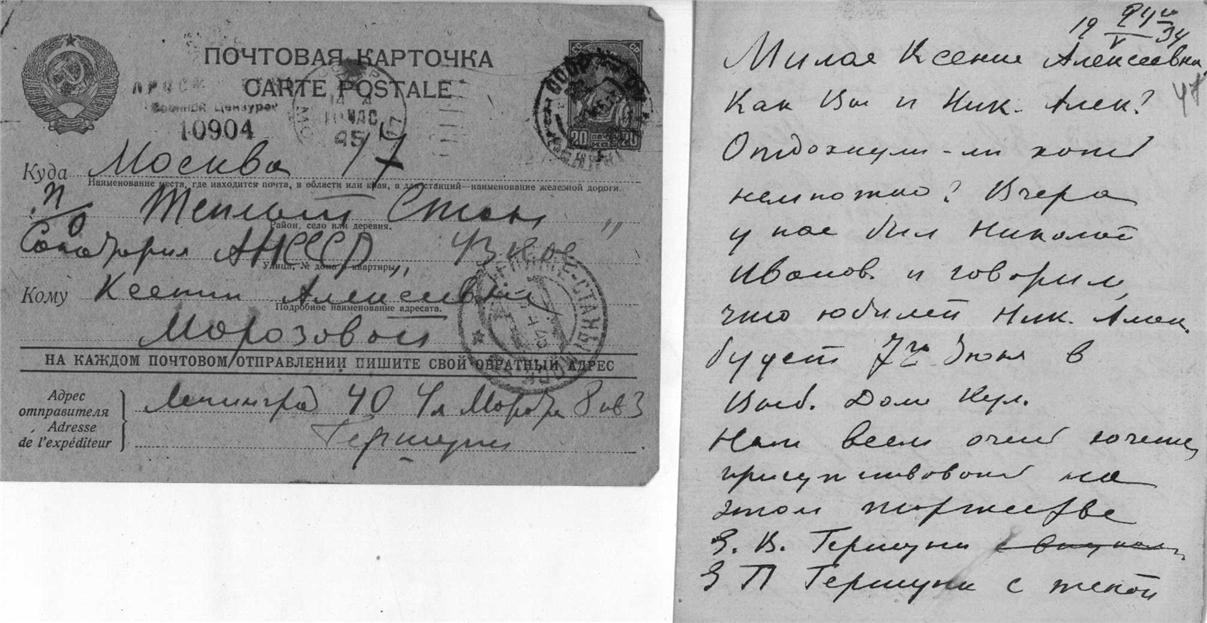 ПОЧТОВАЯ КАРТОЧКА
CARTE POSTALE
Военной Цензурой
10904
20 20
Куда Москва 17
Наименование места, где находится почта, в области или края, а для станций—наименование железной дороги.
п/о Теплый Стан
Район, село или деревня.
Санатория АНСССР, Узкое
Улица, № дома и квартиры.
Кому Ксении Алексеевне
Подробное наименование адресата.
Морозовой
НА КАЖДОМ ПОЧТОВОМ ОТПРАВЛЕНИИ ПИШИТЕ СВОЙ ОБРАТНЫЙ АДРЕС
Адрес отправителя
Adresse de l'expéditeur
Ленинград 40 Ул 8 кв 3
Гершуни
19 V 34
Милая Ксения Алексеевна,
Как Вы и Ник. Алек?
Отдохнули-ли хоть
немножко? Вчера
у нас был Николай
Иванов. и говорил,
что юбилей Ник. Алек.
будет 7го Июня в
Выб. Доме Кул.
Нам всем очень хочется
присутствовать на
этом торжестве
З. В. Гершуни
З П Гершуни с женой